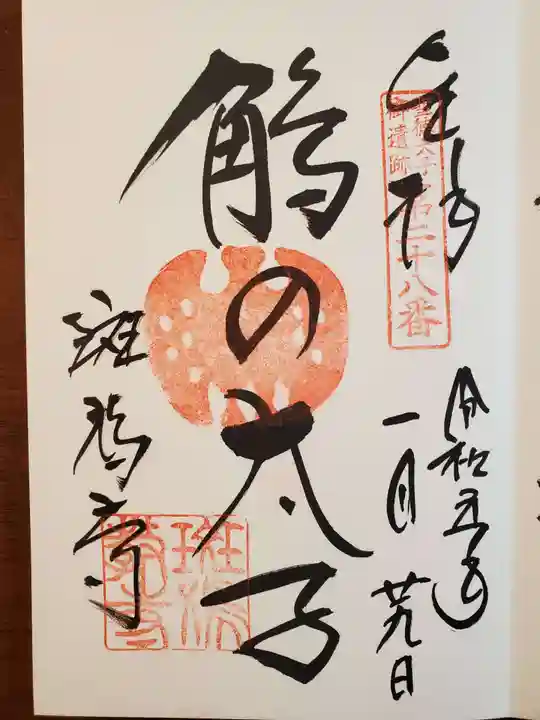 奉拝
聖徳太子
御遺跡
第二十八番
令和五年
一月廿九日
鵤の太子
斑鳩寺
斑鳩
寺